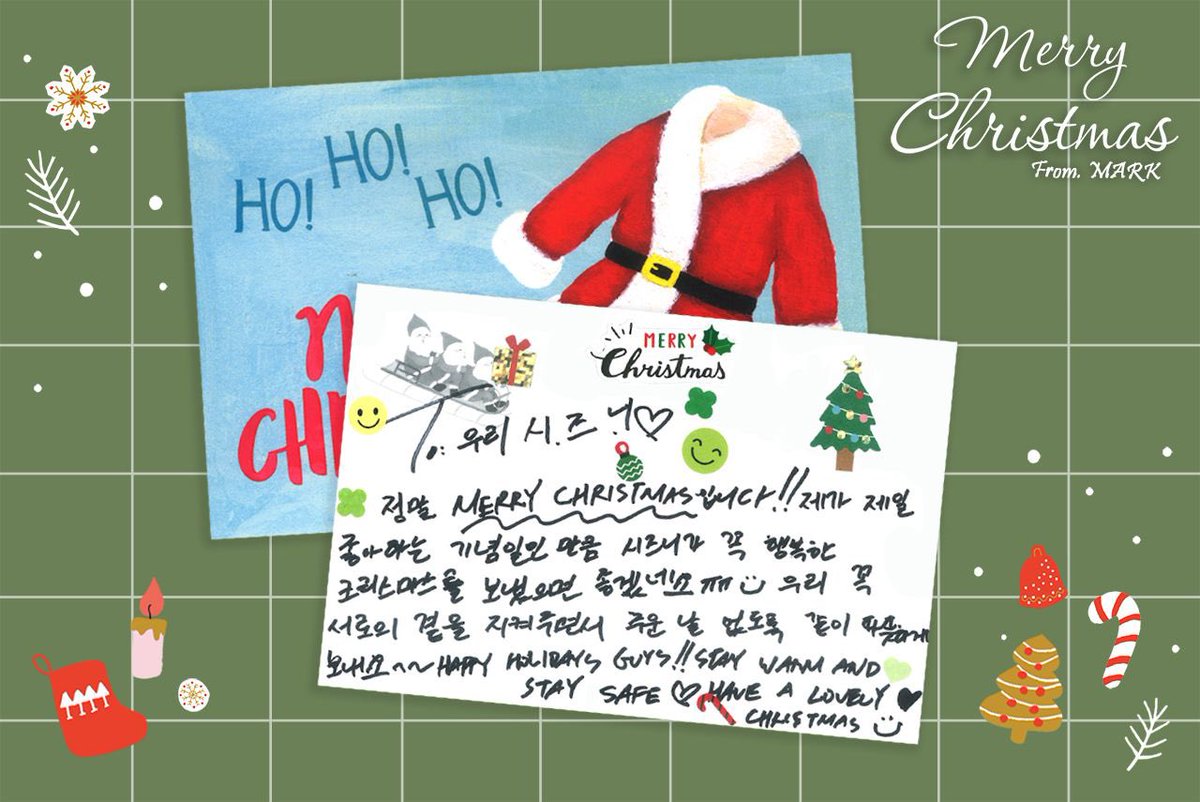 Merry
Christmas
From. MARK
HO! HO! HO!
MERRY
Christmas
To: 우리 시.즈.니♡
정말 MERRY CHRISTMAS입니다!! 제가 제일
좋아하는 기념일인 만큼 시즈니가 꼭 행복한
크리스마스를 보냈으면 좋겠네요ㅠㅠ 우리 꼭
서로의 곁을 지켜주면서 추운 날 없도록 같이 따뜻하게
보내요~~ HAPPY HOLIDAYS GUYS!! STAY WARM AND
STAY SAFE ♡ HAVE A LOVELY
CHRISTMAS